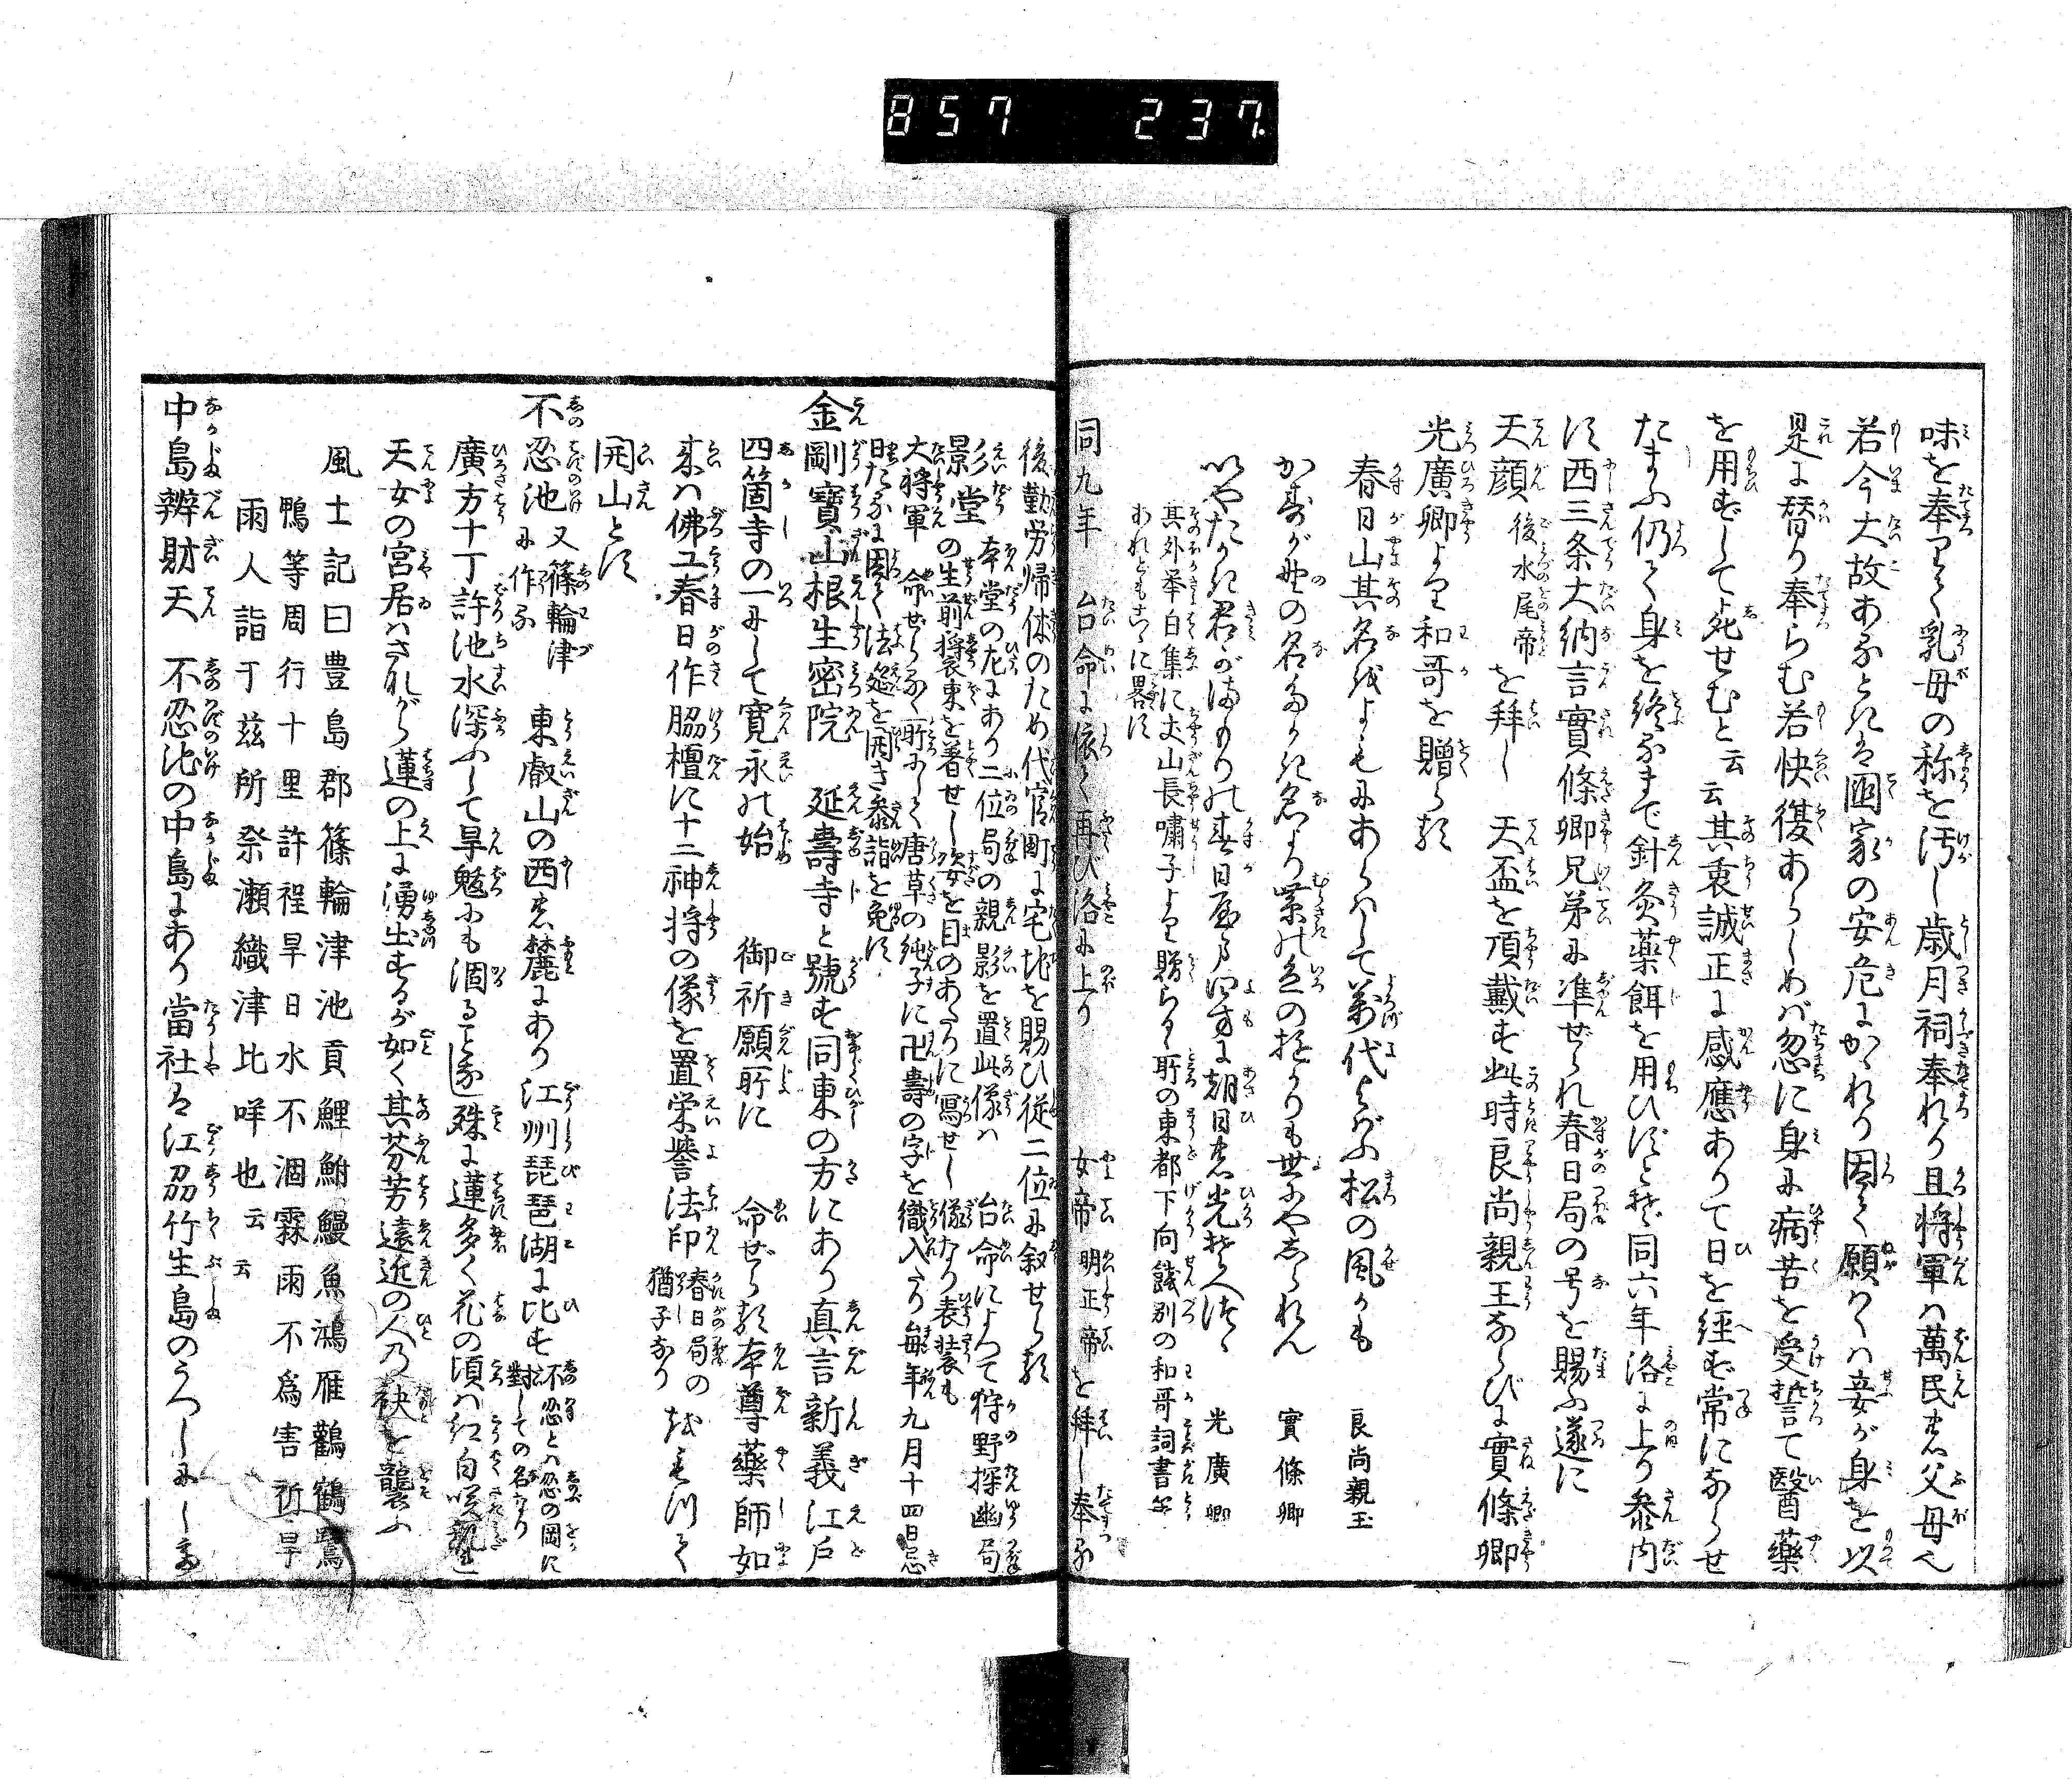 857 237.
味を奉りて乳母の称を汚し歳月祠奉れり且将軍は萬民の父母也
若今大故あるときは國家の安危にかゝれり因て願くは妾が身を以
是に替り奉らむ若快復あらしめば忽に身に病苦を受誓て醫藥
を用ずして死せむと云云其衷誠正に感應ありて日を経ず常にならせ
たまふ仍て身を終るまで針灸藥餌を用ひずとぞ同六年洛に上り参内
す西三条大納言實條卿兄弟に準ぜられ春日局の号を賜ふ遂に
天顔後水尾帝を拜し天盃を頂戴す此時良尚親王ならびに實條卿
光廣卿より和哥を贈らる
春日山其名をよもにあらはして萬代よばふ松の風かも 良尚親王
かすが野の名高き名より紫の色のゆかりも世にやしられん 實條卿
いやたかき君がまもりの春日局四方に朝日の光そへつゝ 光廣卿
其外挙白集に丈山長嘯子より贈らる所の東都下向餞別の和哥詞書等
あれどもこゝに畧す
同九年 台命に依て再び洛に上り 女帝明正帝を拜し奉る
後勤労帰休のため代官町に宅地を賜ひ従二位に叙せらる
影堂 本堂の左にあり二位局の親影を置此像は 台命によつて狩野探幽局
景堂の生前褂束を着せし姿を目のあたりに寫せし像なり表装も
大将軍 命ぜられて所にして唐草の純子に卍壽の字を織入たり毎年九月十四日忌
日たるに因て法筵を開き参詣を免す
金剛寶山根生密院 延壽寺と號す同東の方にあり真言新義江戸
四箇寺の一にして寛永の始 御祈願所に 命ぜらる本尊藥師如
来は佛工春日作脇檀に十二神将の像を置栄誉法印春日局の猶子なりをもつて
開山とす
不忍池又篠輪津に作る 東叡山の西の麓にあり江州琵琶湖に比す不忍とは忍の岡に對しての名なり
廣方十丁許池水深ふして旱魃にも涸ることなし殊に蓮多く花の頃は紅白咲乱
天女の宮居はさながら蓮の上に湧出するが如く其芬芳遠近の人の袂を襲ふ
風土記曰豊島郡篠輪津池貢鯉鮒鰻魚鴻雁鸛鶴鷺
鴨等周行十里許程旱日水不涸霖雨不為害祈旱
雨人詣于茲所祭瀬織津比咩也云云
中島辨財天 不忍池の中島にあり當社は江刕竹生島のうつしにして